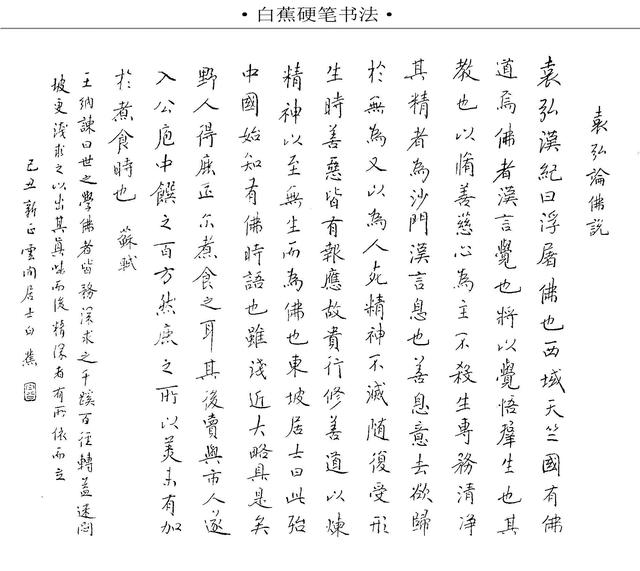 ·白蕉硬笔书法·
袁弘論佛説
袁弘漢紀曰浮屠佛也西域天竺國有佛
道焉佛者漢言覺也將以覺悟羣生也其
教也以脩善慈心為主不殺生專務清净
其精者為沙門漢言息也善息意去欲歸
於無為又以為人死精神不滅随復受形
生時善惡皆有報應故貴行修善道以煉
精神以至無生而為佛也東坡居士曰此殆
中國始知有佛時語也雖淺近大略具是矣
野人得鹿正尔煮食之耳其後賣與市人遂
入公庖中饌之百方然鹿之所以美未有加
於煮食時也 蘇軾
王納諫曰世之學佛者皆務深求之千蹊百徑轉益迷悶
坡更淺求之以出其真味而後精深者有所依而立
己丑新正雲间居士白蕉